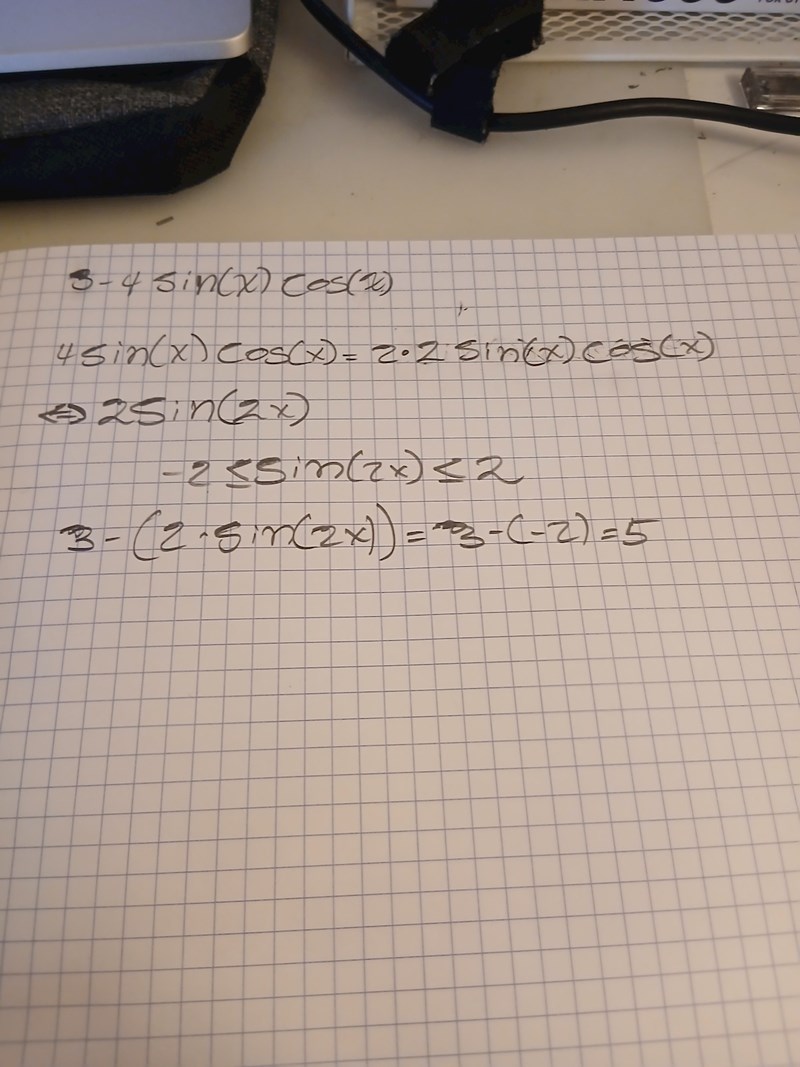 3-4 sin(x) cos(x)
4sin(x) cos(x)= 2·2 sin(x) cos(x)
⇔ 2sin(2x)
-2 ≤ sin(2x) ≤ 2
3-(2·sin(2x))= 3-(-2)=5